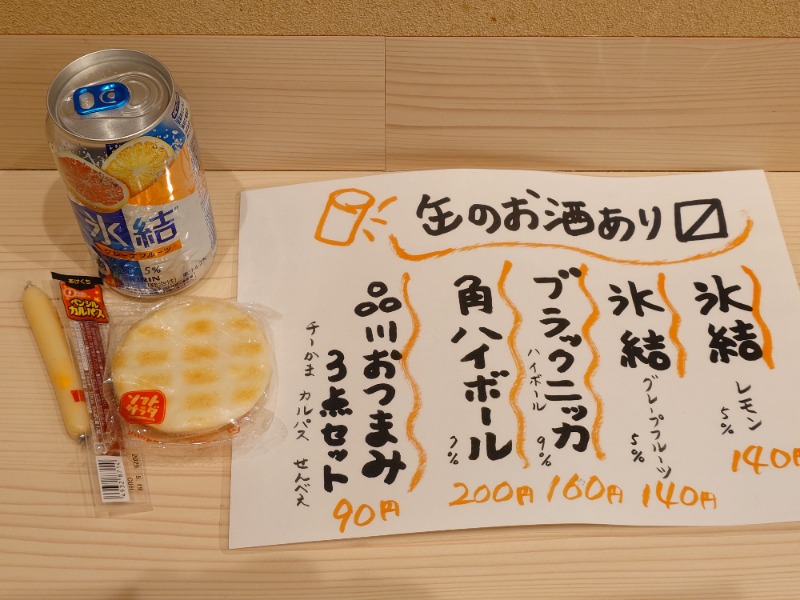 缶のお酒あり〼
氷結
レモン
5%
140円
氷結
グレープフルーツ
5%
140円
ブラックニッカ
ハイボール
9%
160円
角ハイボール
7%
200円
品川おつまみ
3点セット
チーかま カルパス せんべえ
90円
氷結
グレープフルーツ
5%
ペンシル
カルパス
サラダ
ソフト